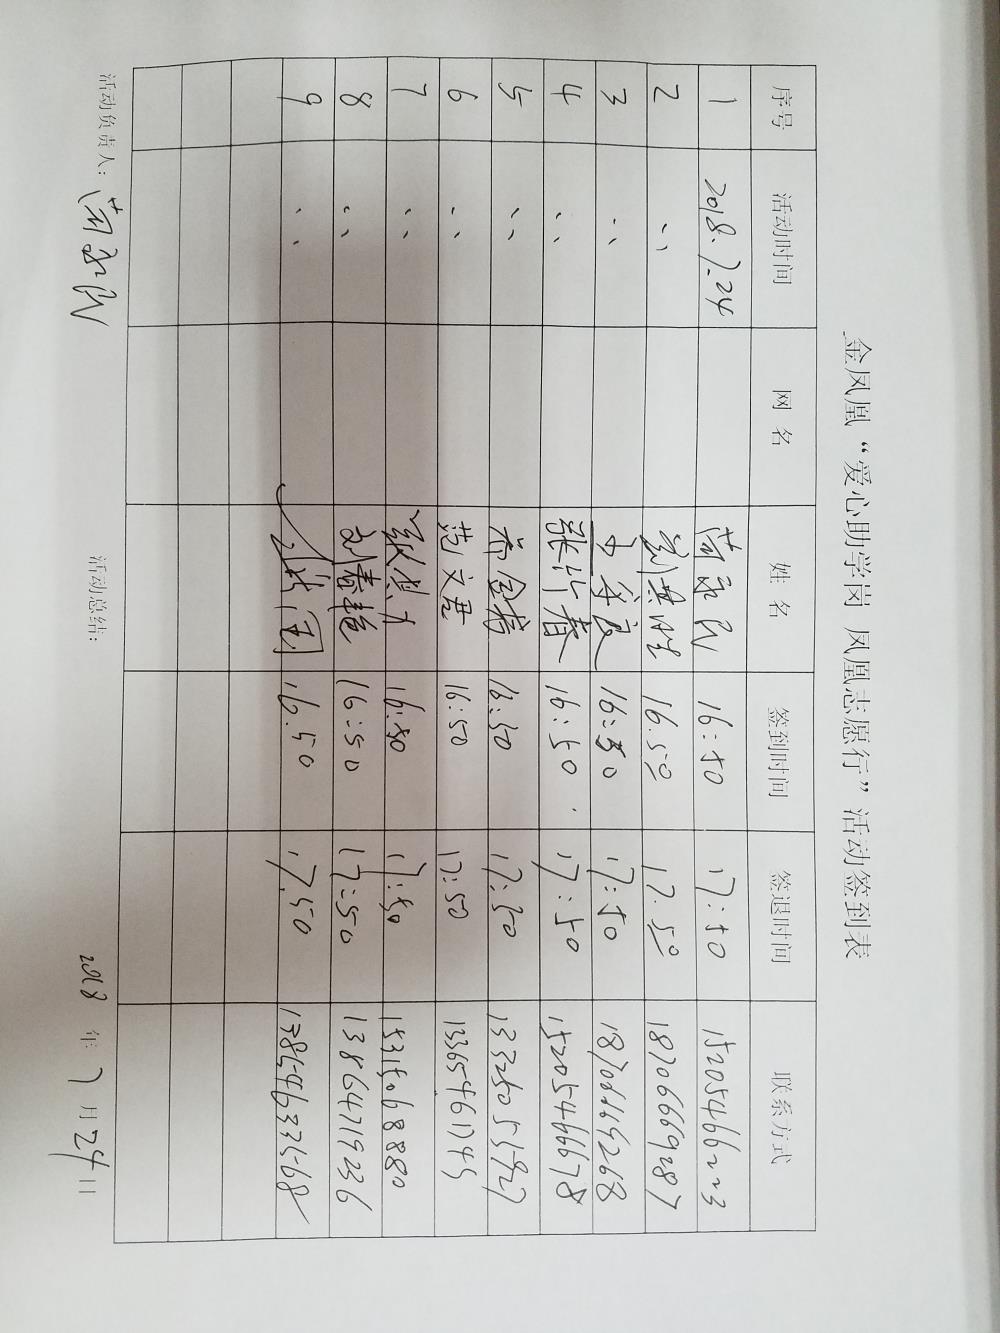 金凤凰“爱心助学岗 凤凰志愿行”活动签到表
序号 活动时间 网 名 姓 名 签到时间 签退时间 联系方式
1 2018.7.24 16:50 17:50 15205466223
2 〃 16.50 17.50 187066669287
3 〃 16:50 17:50
4 〃 张竹春 16:50 17:50 15205466678
5 〃 16:50 17:50 13325055927
6 〃 范文君 16:50 17:50 13365461745
7 〃 16:50 17:50 15315068880
8 〃 刘春艳 16:50 17:50 13864719236
9 〃 16.50 17.50
活动负责人: 活动总结: 2018 年 7 月 24 日